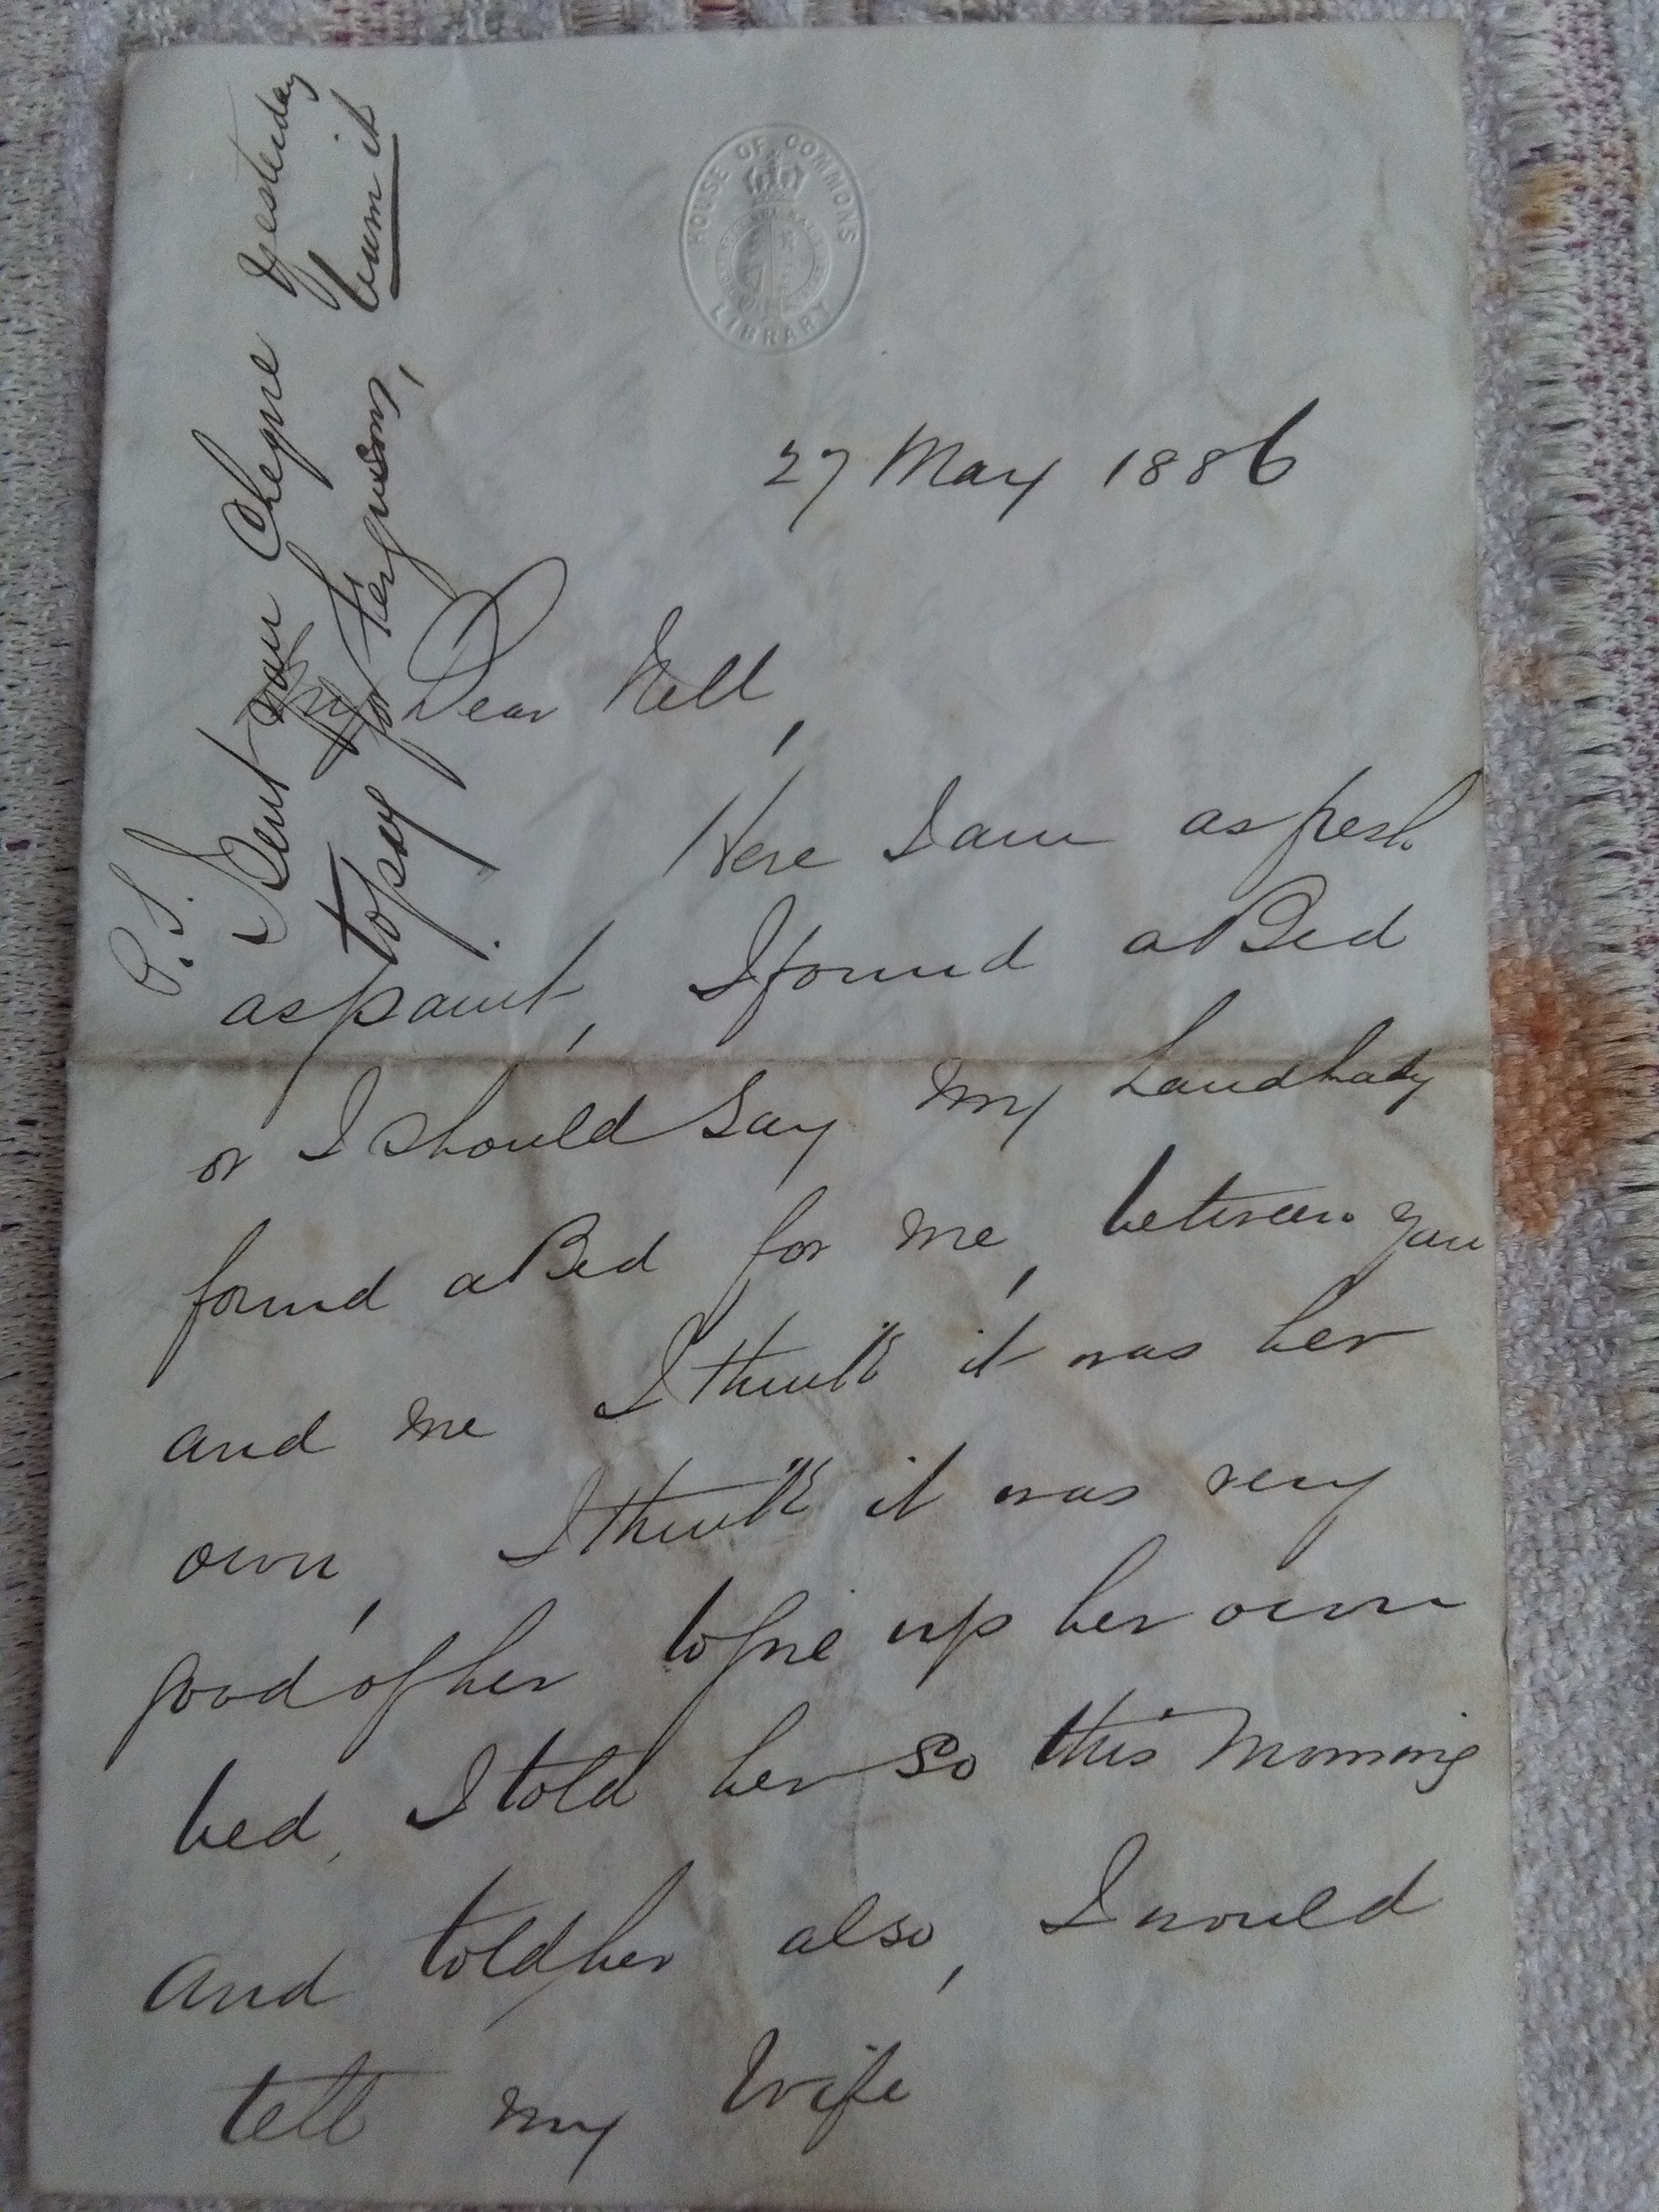 HOUSE OF COMMONS
LIBRARY
27 May 1886
My Dear Nell,
Here I am as fresh
as paint, I found a Bed
or I should say my Landlady
found a Bed for me, between you
and me I think it was her
own, I think it was very
good of her to give up her own
bed, I told her so this morning
and told her also, I would
tell my Wife
P.S.
Sent you Cheque yesterday
to pay for Fergusons,
burn it